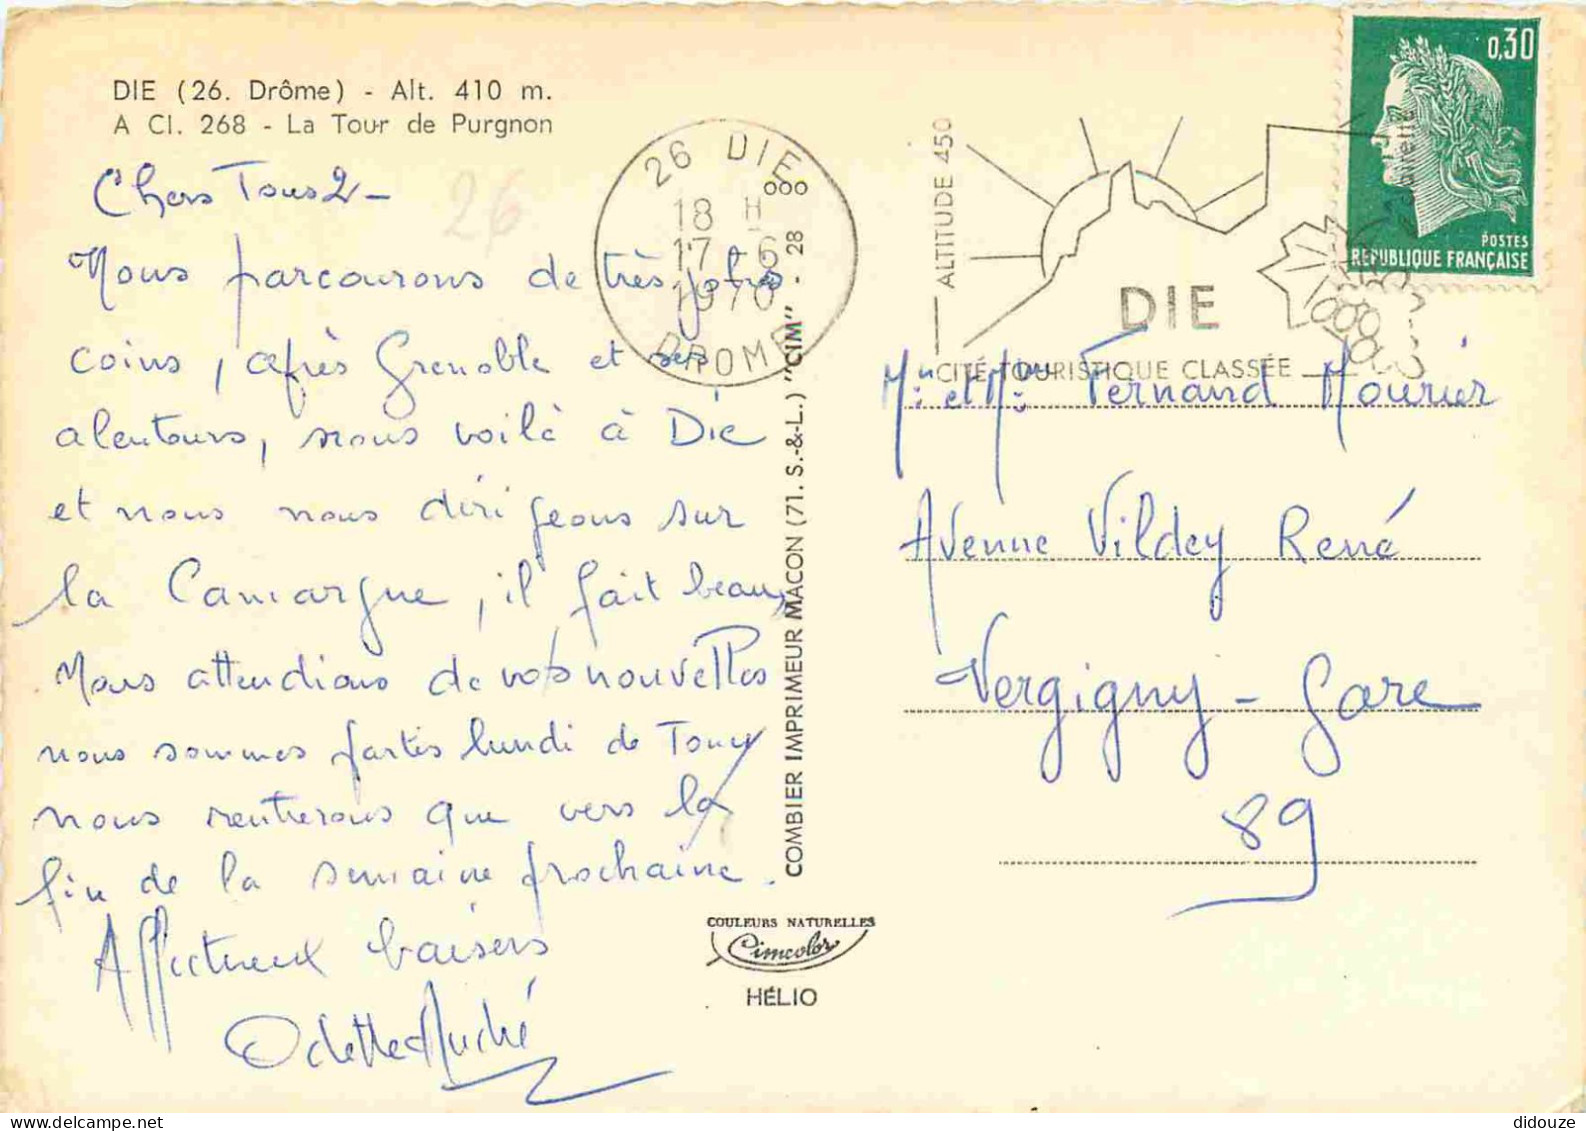 DIE (26. Drôme) - Alt. 410 m.
A Cl. 268 - La Tour de Purgnon
Chers Tous 2 -
26
Nous parcourons de très jolis
coins, après Grenoble et ses
alentours, nous voilà à Die
et nous nous dirigeons sur
la Camargue, il fait beau,
Nous attendions de vos nouvelles
nous sommes partis lundi de Toucy
nous rentrerons que vers la
fin de la semaine prochaine.
Affectueux baisers
Odette André
26 DIE
18 H
17 - 6
1970
DROME
COMBIER IMPRIMEUR MACON (71. S.-&-L.) "CIM" - 28 000
COULEURS NATURELLES
Cimcolor
HÉLIO
ALTITUDE 450
DIE
CITÉ TOURISTIQUE CLASSÉE
Clairette
0,30
POSTES
RÉPUBLIQUE FRANÇAISE
Mr et Mme Fernand Mourier
Avenue Vildey René
Vergigny - Gare
89
didouze